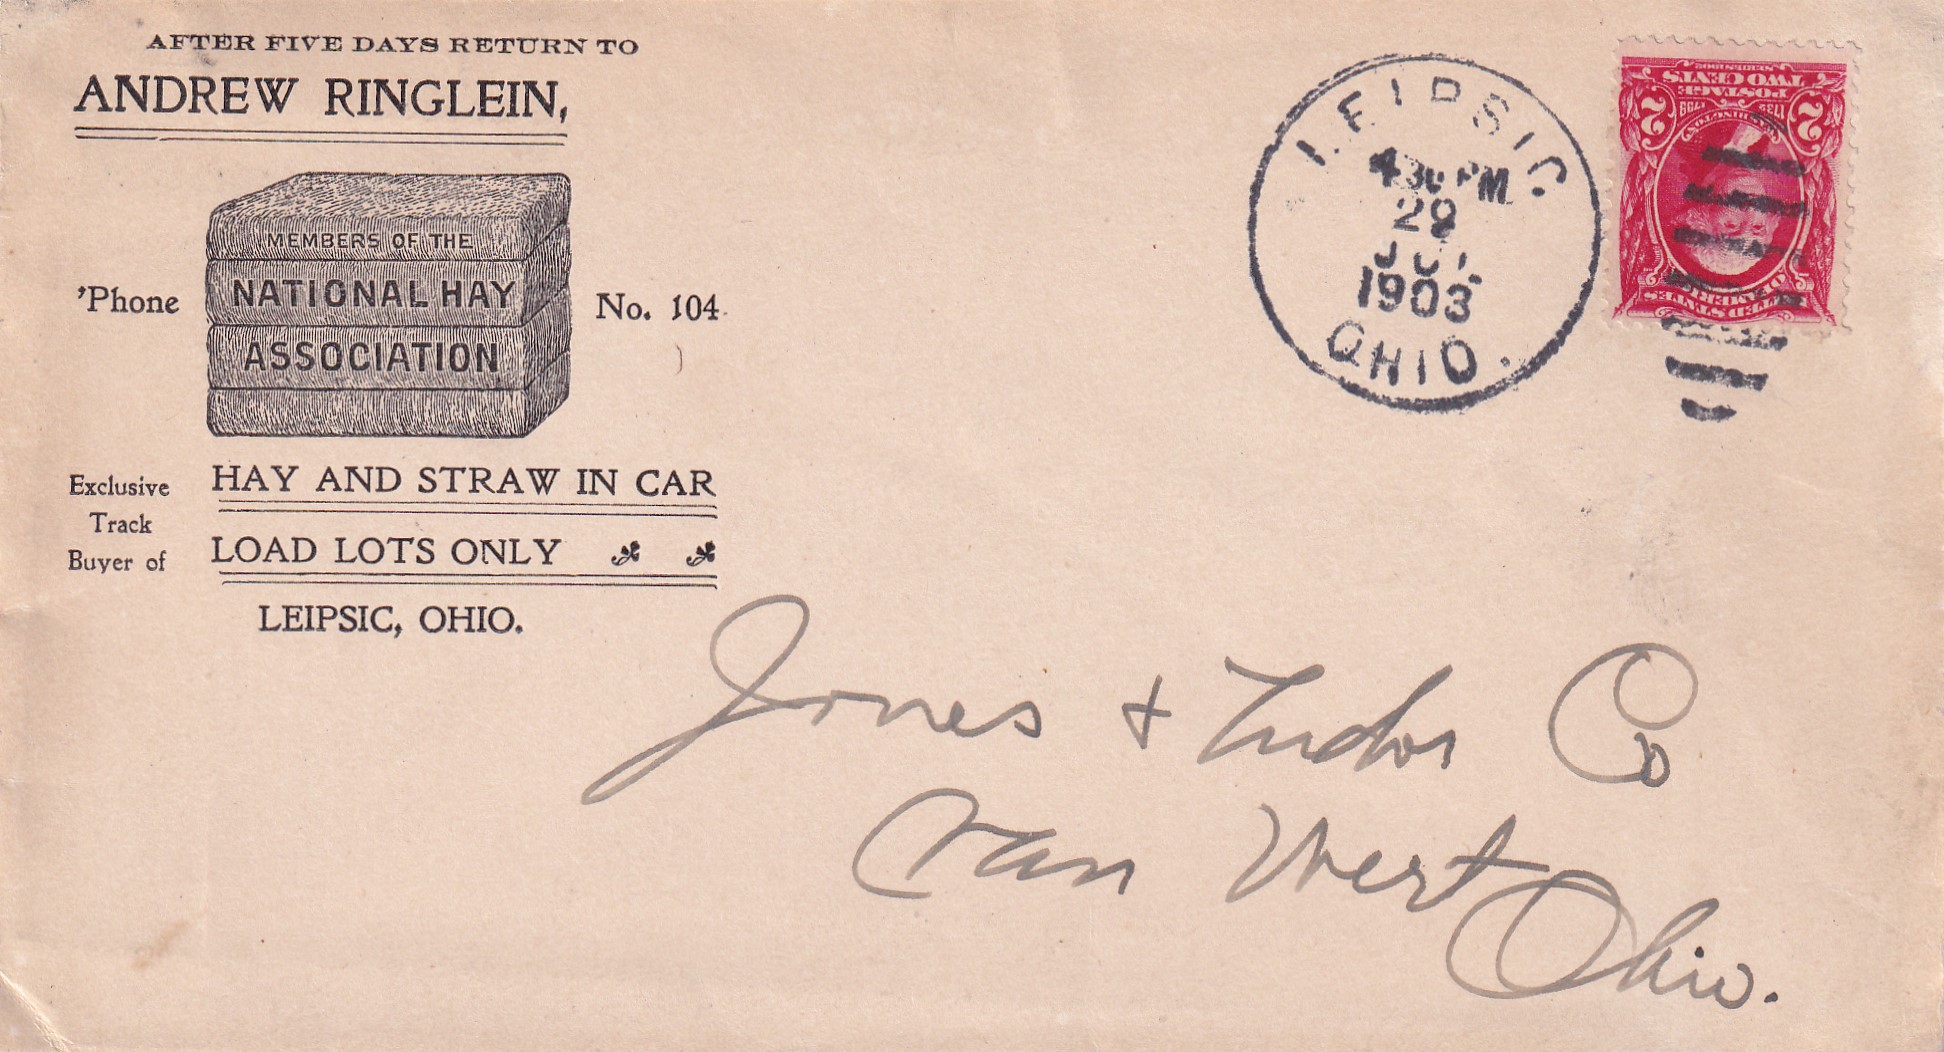 AFTER FIVE DAYS RETURN TO
ANDREW RINGLEIN,
MEMBERS OF THE
NATIONAL HAY
ASSOCIATION
'Phone No. 104
Exclusive Track Buyer of
HAY AND STRAW IN CAR
LOAD LOTS ONLY
LEIPSIC, OHIO.
LEIPSIC
430 PM
29
JUL
1903
OHIO.
UNITED STATES
WASHINGTON
1732 1799
2 2
POSTAGE
TWO CENTS
SERIES 1902
Jones + Tudor Co
Van Wert
Ohio.